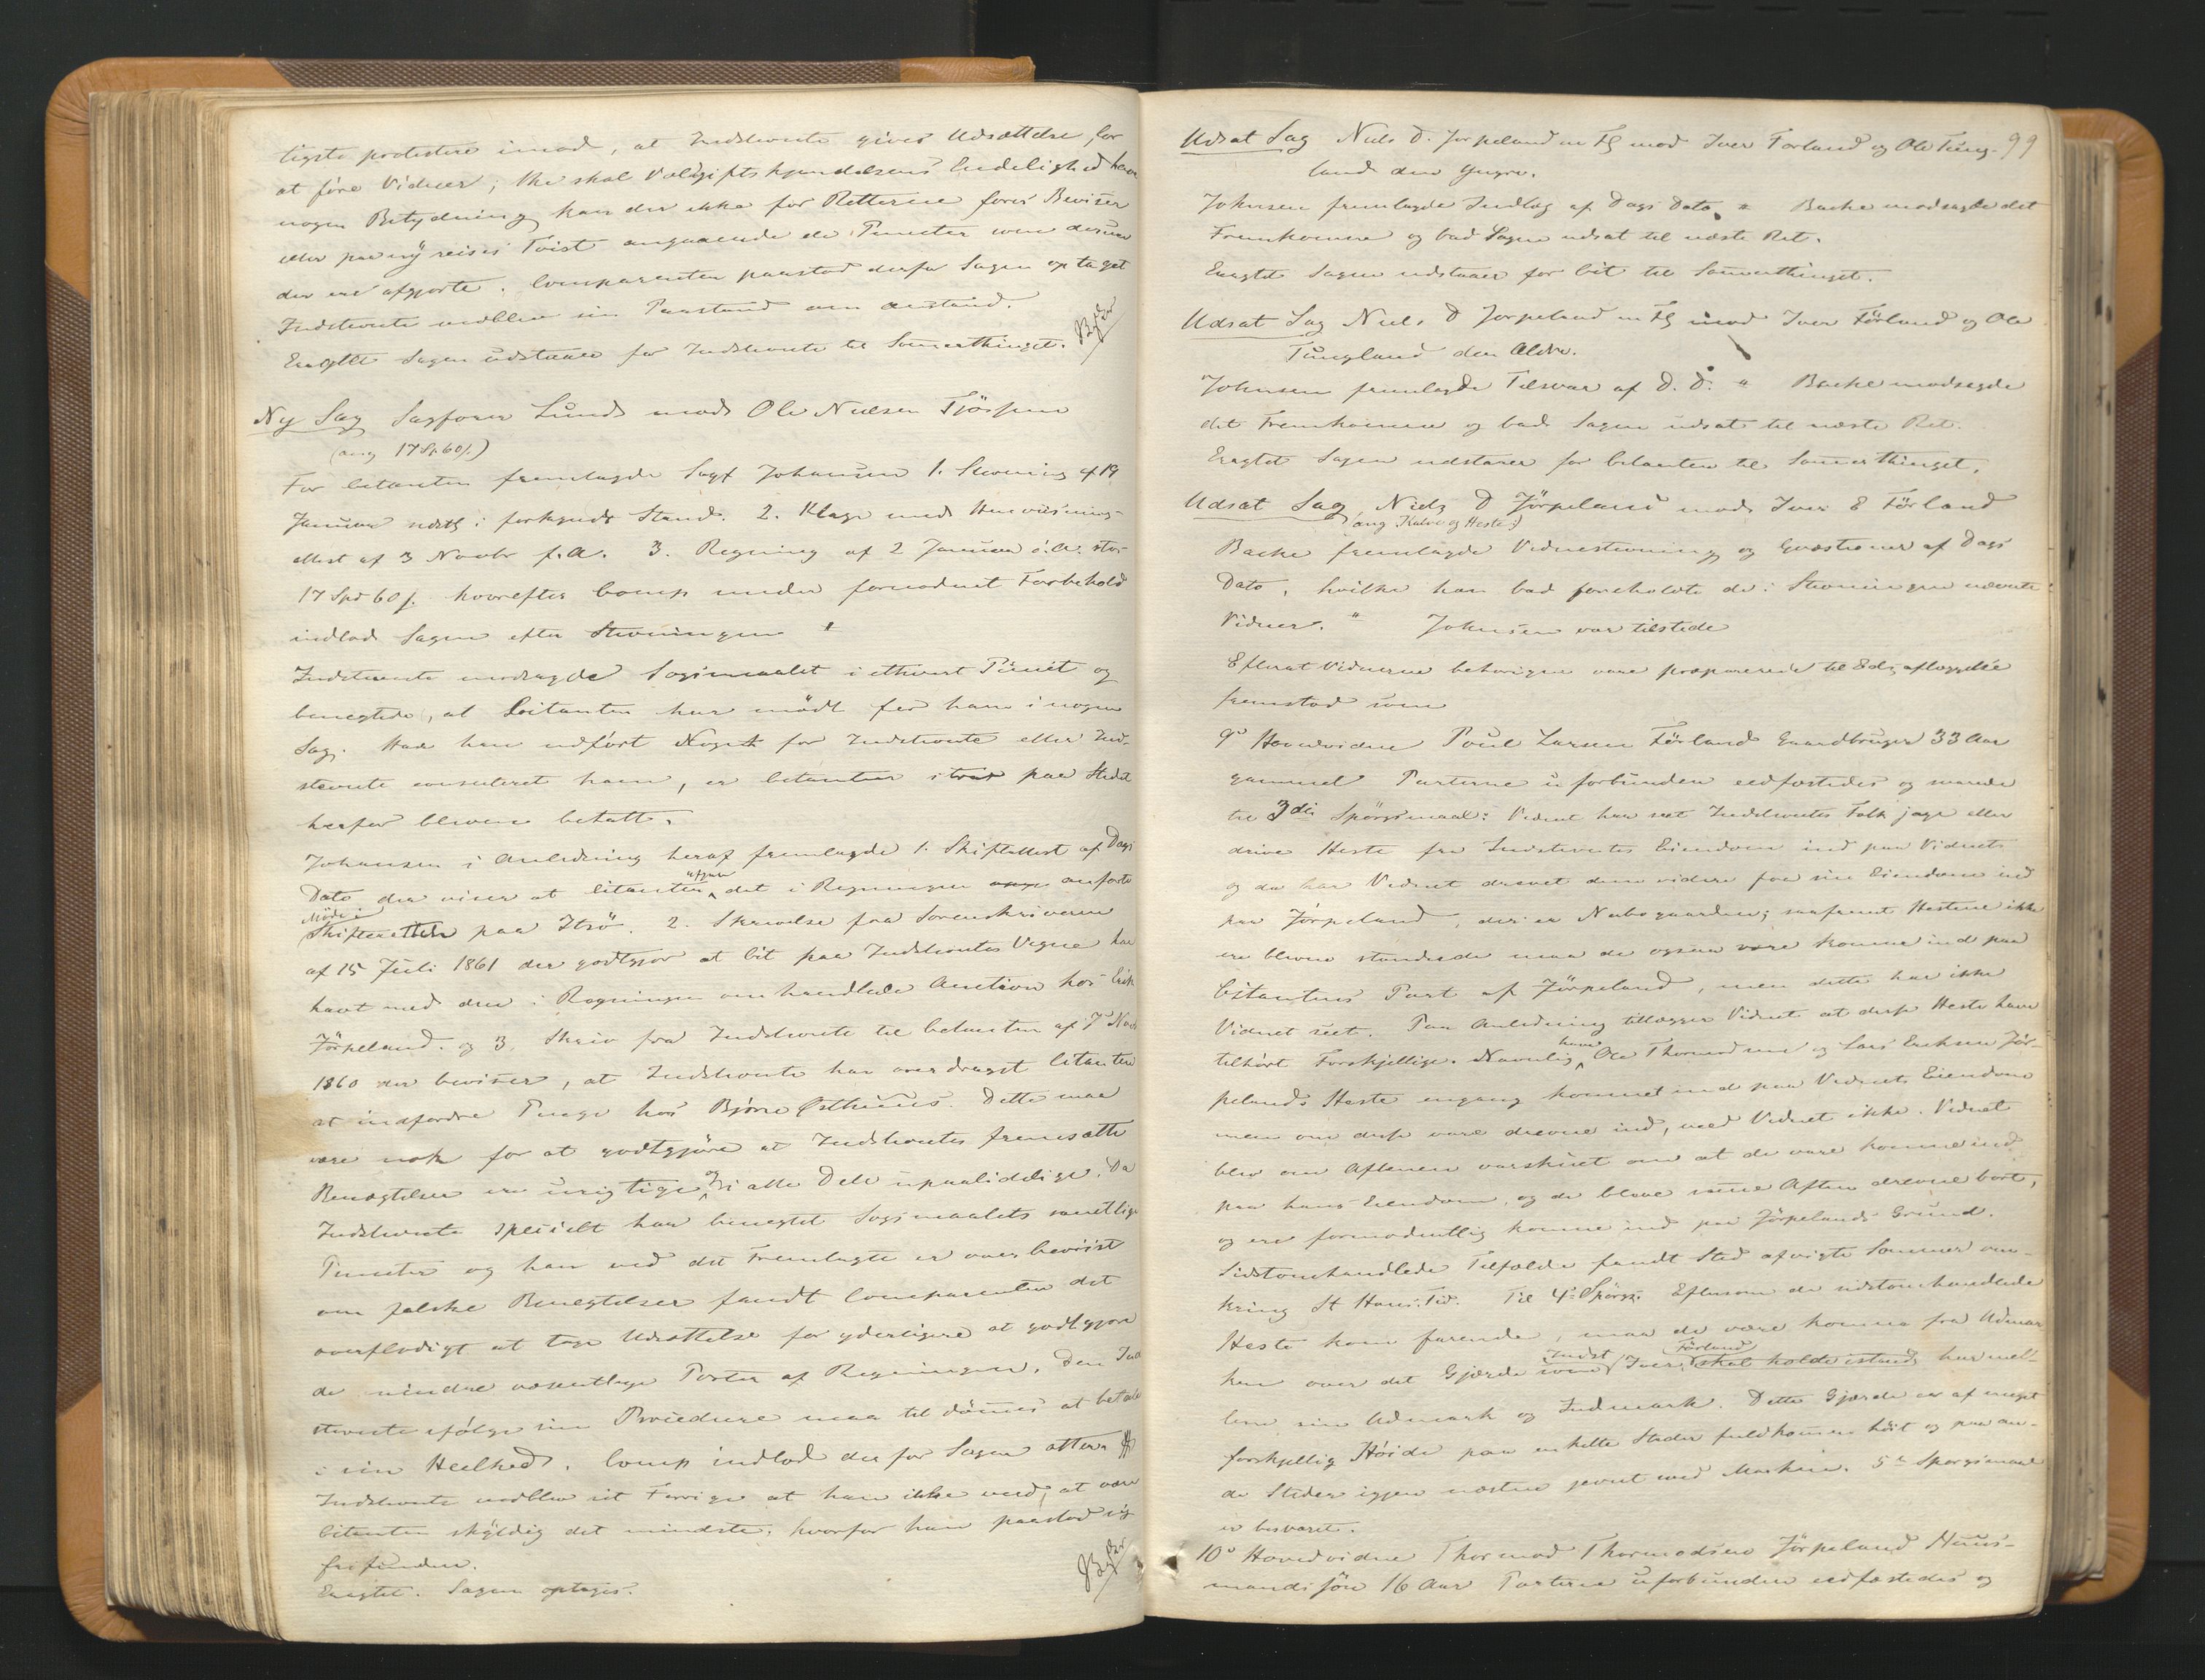 tigste protestere imod, at Indstevnte gives Udsættelse for
at føre Vidner; thi skal Voldgiftskjendelsens Endelighed have
nogen Betydning kan der ikke for Retterne føres Beviser
eller paa ny reises Tvist angaaende de Puncter som derved
der ere afgjorte. Comparenten paastod derfor Sagen optaget
Indstevnte vedblev sin Paastand om Anstand.
Eragtet Sagen udstaaer for Indstevnte til Sommerthinget.
Ny Sag Sagfører Lund mod Ole Nielsen Fjøssene
(ang 17 Sp. 60 s.)
For Citanten fremlagde Sagf Johansen 1. Stevning af 19
Januar i forkyndt Stand. 2. Klage med Henviisnings-
attest af 3 Novbr f. A. 3. Regning af 2 Januar d. A. stor
17 Spd 60 s. hvorefter Comp under fornødent Forbehold
indlod Sagen efter Stevningen "
Indstevnte modsagde Sogsmaalet i ethvert Punct og
benegtede, at Citanten har mødt for ham i nogen
Sag. Har han udført Noget for Indstevnte eller Ind-
stevnte consuleret ham, er Citanten strax paa Stedet
herfor bleven betalt.
Johansen i Anledning heraf fremlagde 1. Skifteattest af Dags
Dato der viser at Citanten det i Regningen anførte
Møde i
Skifteretten paa Idsø. 2. Skrivelse fra Sorenskriveren
af 15 Juli 1861 der godtgjør at Cit paa Indstevntes Vegne har
havt med den i Regningen omhandlede Auction hos Erik
Jørpeland. og 3. Skriv fra Indstevnte til Citanten af 7 Novb
1860 der beviser, at Indstevnte har overdraget Citanten
at indfordre Penge hos Bjørn Østhuus. Dette maa
være nok for at godtgjøre at Indstevntes fremsatte
Benægtelser ere urigtige og i alle Dele upaalidelige. Da
Indstevnte specielt har benegtet Sogsmaalets samtlige
Puncter og han ved det Fremlagte er overbeviist
om falske Benegtelser fandt Comparenten det
overflødigt at tage Udsættelse for yderligere at godtgjøre
de mindre væsentlige Poster af Regningen. Den Ind
stevnte ifølge sin Procedure maa tildømmes at betale
i sin Heelhed. Comp indlod derfor Sagen atter.
Indstevnte vedblev sit Forrige at han ikke veed, at være
Citanten skyldig det mindste, hvorfor han paastod sig
frifunden.
Eragtet. Sagen optages.
99
Udsat Sag Niels D. Jørpeland m Fl mod Iver Førland og Ole Tung-
land den Yngre.
Johnsen fremlagde Indlæg af Dags Dato " Backe modsagde det
Fremkomne og bad Sagen udsat til næste Ret.
Eragtet Sagen udstaaer for Cit til Sommerthinget.
Udsat Sag Niels D Jørpeland m Fl mod Iver Førland og Ole
Tungland den Ældre.
Johnsen fremlagde Tilsvar af D. D. " Backe modsagde
det Fremkomne og bad Sagen udsat til næste Ret.
Eragtet Sagen udstaaer for Citanten til Sommerthinget.
Udsat Sag Niels D Jørpeland mod Iver E Førland
(ang Kalve og Heste)
Backe fremlagde Vidnestevning og Qvæstioner af Dags
Dato, hvilke han bad foreholdte de i Stevningen nævnte
Vidner. " Johnsen var tilstede
Efterat Vidnerne behørigen vare præparerede til Eds aflæggelse
fremstod som
9de Hovedvidne Poul Larsen Førland Gaardbruger 33 Aar
gammel Parterne uforbunden eedfæstedes og svarede
til 3die Spørgsmaal: Vidnet har seet Indstevntes Folk jage eller
drive Heste fra Indstevntes Eiendom ind paa Vidnets
og da har Vidnet drevet dem videre fra sin Eiendom ind
paa Jørpeland, der er Nabogaarden; saafremt Hestene ikke
ere blevne standsede maa de ogsaa være komne ind paa
Citantens Part af Jørpeland, men dette har ikke
Vidnet seet. Paa Anledning tillægger Vidnet at disse Heste have
tilhørt Forskjellige. Navnlig have Ole Thormodsens og Lars Eriksen Jør-
pelands Heste engang kommet ind paa Vidnets Eiendom
men om disse vare drevne ind, veed Vidnet ikke. Vidnet
blev om Aftenen varskuet om at de vare komne ind
paa hans Eiendom, og de bleve samme Aften drevne bort,
og ere formodentlig komne ind paa Jørpelands Grund.
Sidstomhandlede Tilfælde fandt Sted afvigte Sommer om-
kring St Hans Tid. Til 4de Spørgs. Eftersom de sidstomhandlede
Heste kom farende, maa de være komne fra Udmar
ken over det Gjærde som Indst Iver Førland skal holde istand har mel-
lem sin Udmark og Indmark. Dette Gjærde er af meget
forskjellig Høide paa enkelte Steder fuldkommen høit og paa an-
dre Steder igjen næsten jevnt med Marken. 5te Spørgsmaal
er besvaret.
10de Hovedvidne Thormod Thormodsen Jørpeland Huus-
mandssøn 16 Aar Parterne uforbunden eedfæstedes og